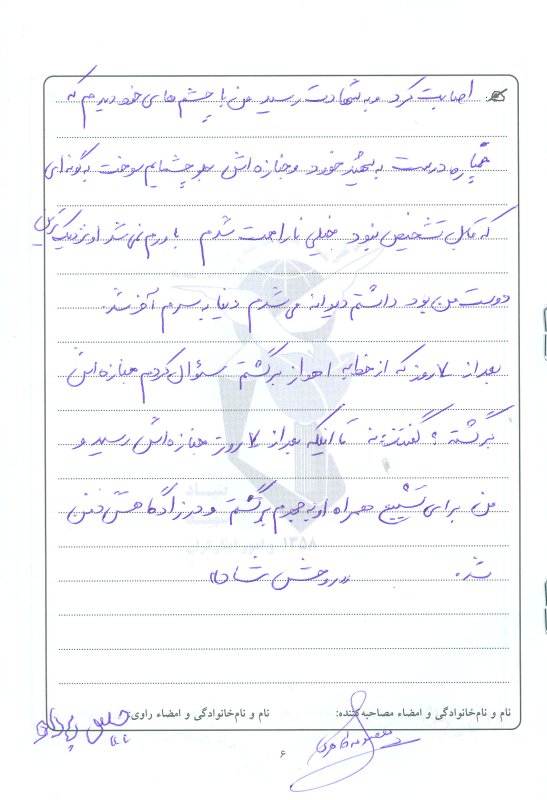 اصابت کرد و به شهادت رسید من با چشم های خود دیدم که
خمپاره درست به مجید خورد و جنازه اش جلو چشمایم سوخت به گونه ای
که قابل تشخیص نبود خیلی ناراحت شدم باورم نمی شد او نزدیک ترین
دوست من بود داشتم دیوانه می شدم دنیا به سرم آخر شد.
بعد از ۷ روز که از خط به اهواز برگشتم سئوال کردم جنازه اش
برگشته؟ گفتند: نه تا اینکه بعد از ۷ روز جنازه اش رسید و
من برای تشییع همراه او به جهرم برگشتم و در زادگاهش دفن
شد. «روحش شاد»
نام و نام‌خانوادگی و امضاء مصاحبه‌کننده: نام و نام‌خانوادگی و امضاء راوی:
۶